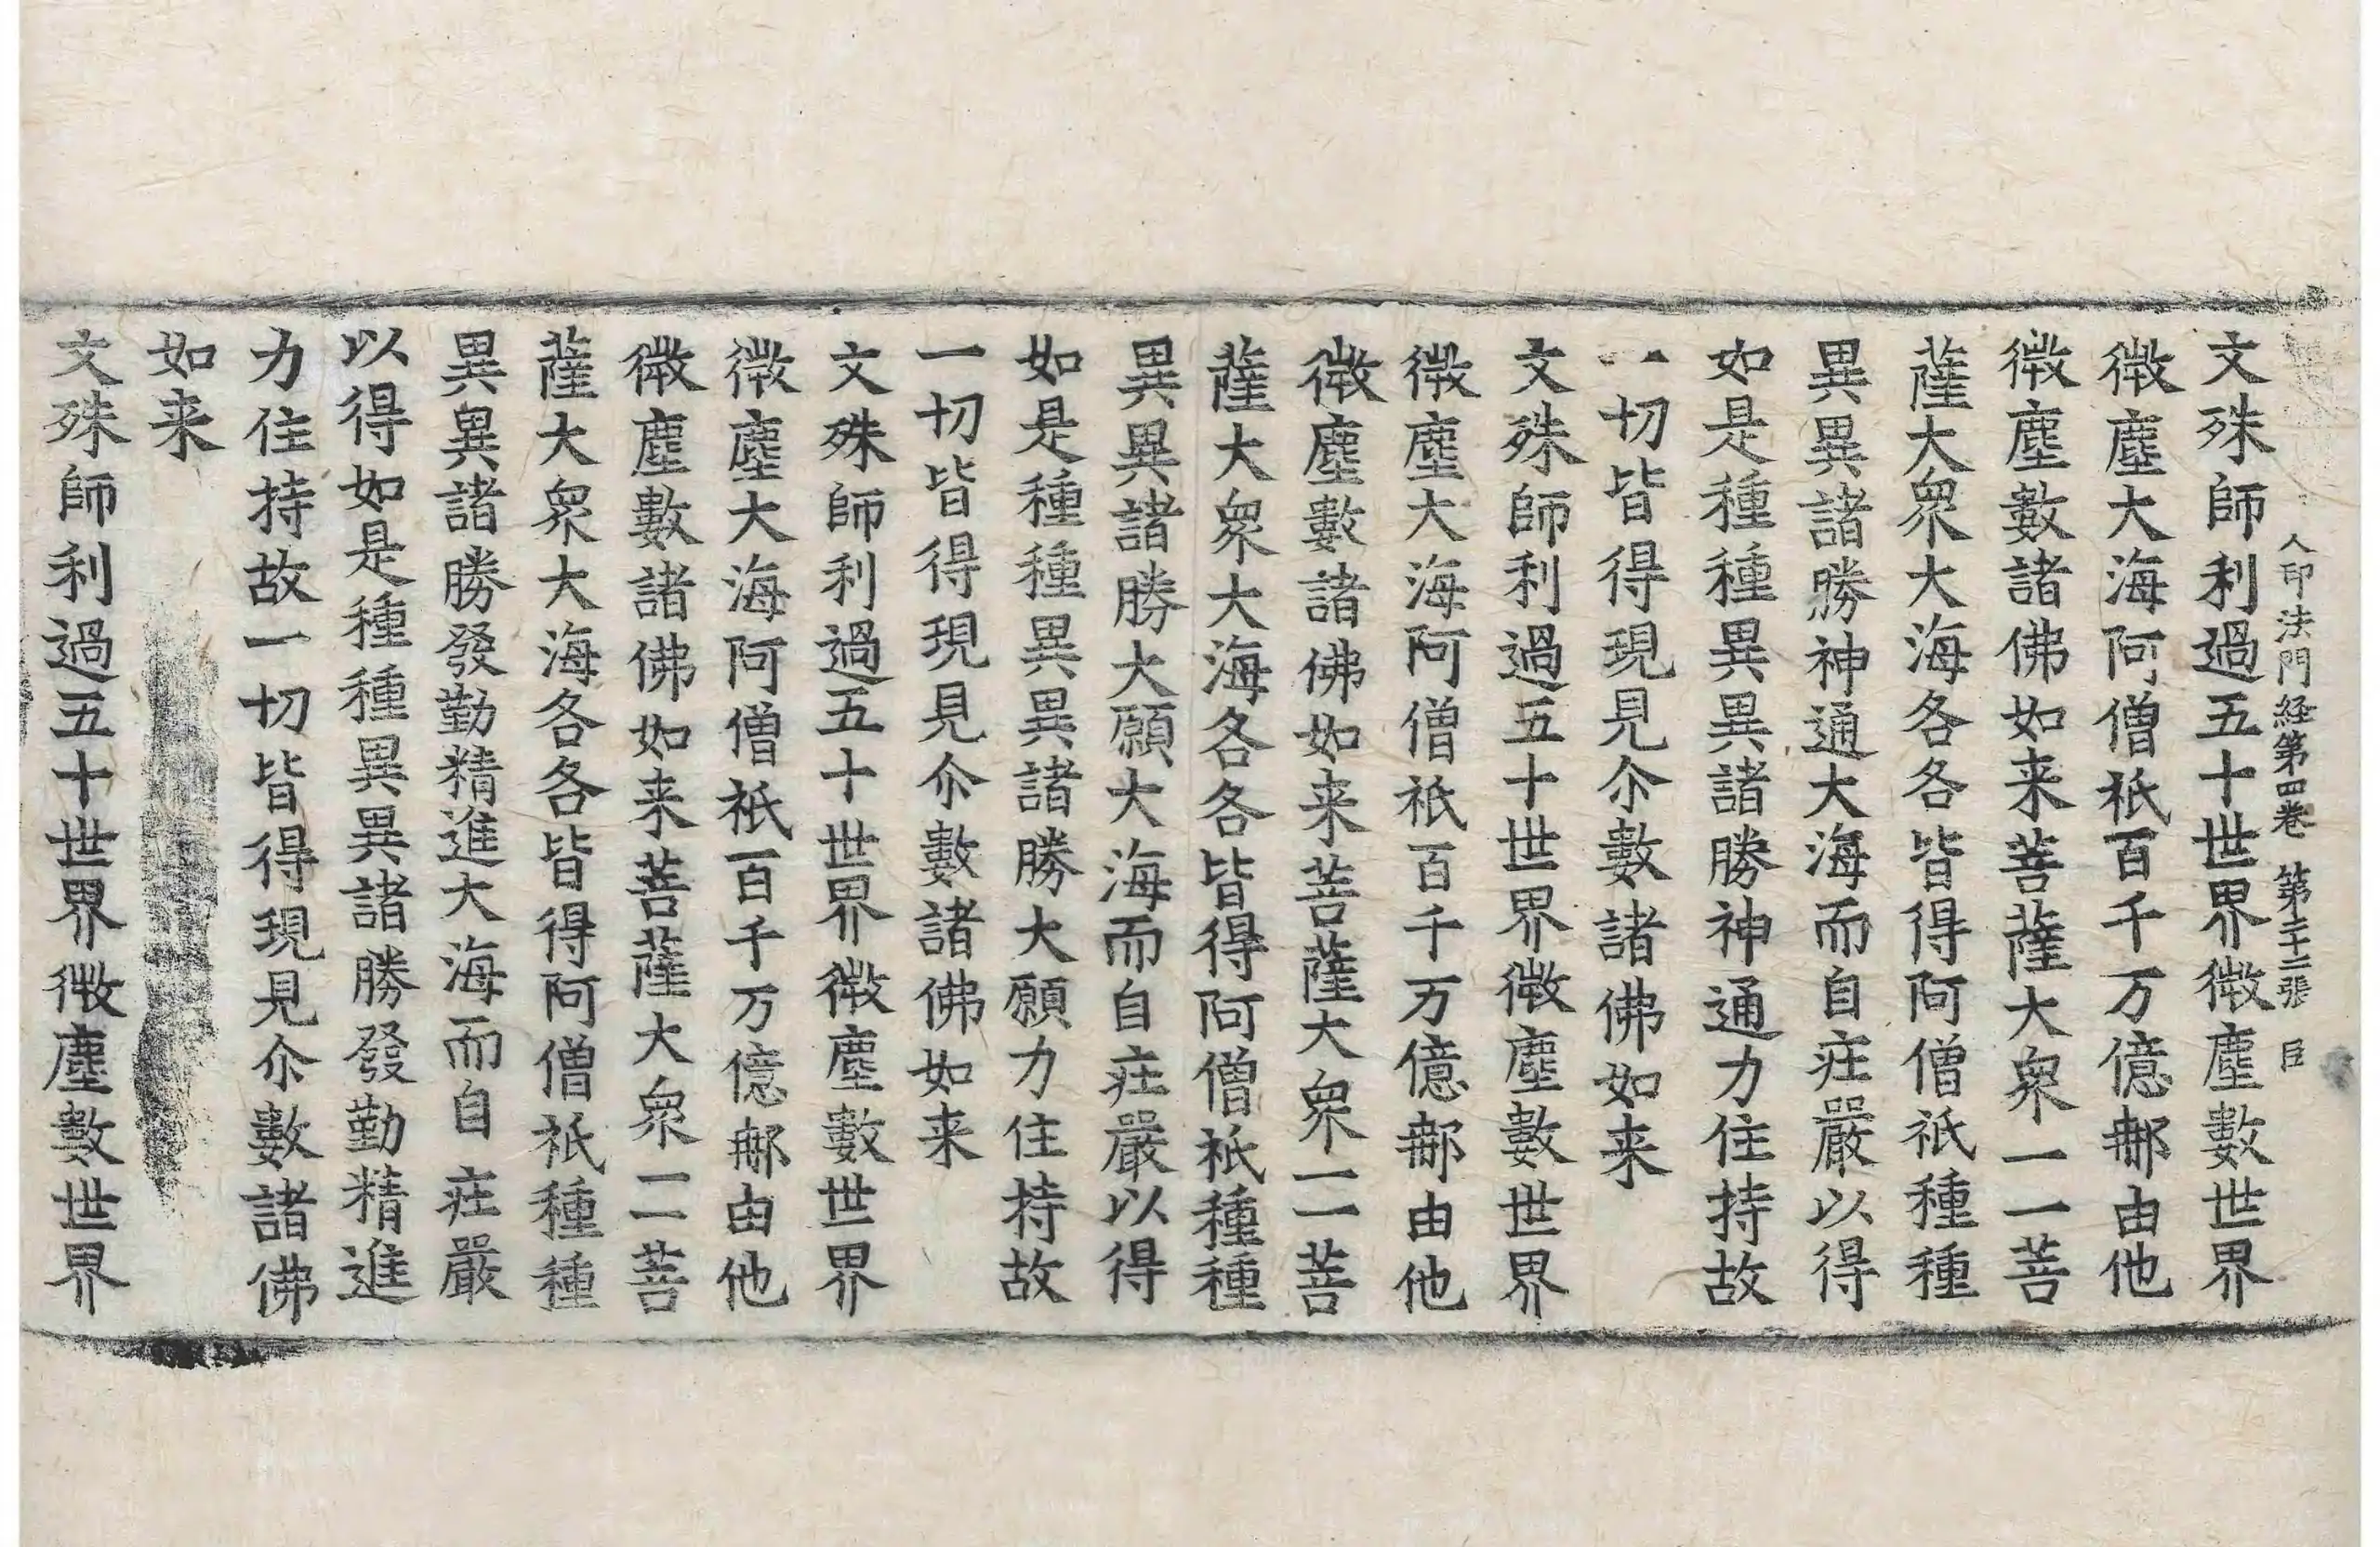 入印法門経第四巻 第二十二張 臣
文殊師利過五十世界微塵數世界
微塵大海阿僧祇百千万億𨚗由他
微塵數諸佛如来菩薩大衆一一菩
薩大衆大海各各皆得阿僧祇種種
異異諸勝神通大海而自庄嚴以得
如是種種異異諸勝神通力住持故
一切皆得現見尒數諸佛如来
文殊師利過五十世界微塵數世界
微塵大海阿僧祇百千万億𨚗由他
微塵數諸佛如来菩薩大衆一一菩
薩大衆大海各各皆得阿僧祇種種
異異諸勝大願大海而自庄嚴以得
如是種種異異諸勝大願力住持故
一切皆得現見尒數諸佛如来
文殊師利過五十世界微塵數世界
微塵大海阿僧祇百千万億𨚗由他
微塵數諸佛如来菩薩大衆一一菩
薩大衆大海各各皆得阿僧祇種種
異異諸勝發勤精進大海而自庄嚴
以得如是種種異異諸勝發勤精進
力住持故一切皆得現見尒數諸佛
如来
文殊師利過五十世界微塵數世界